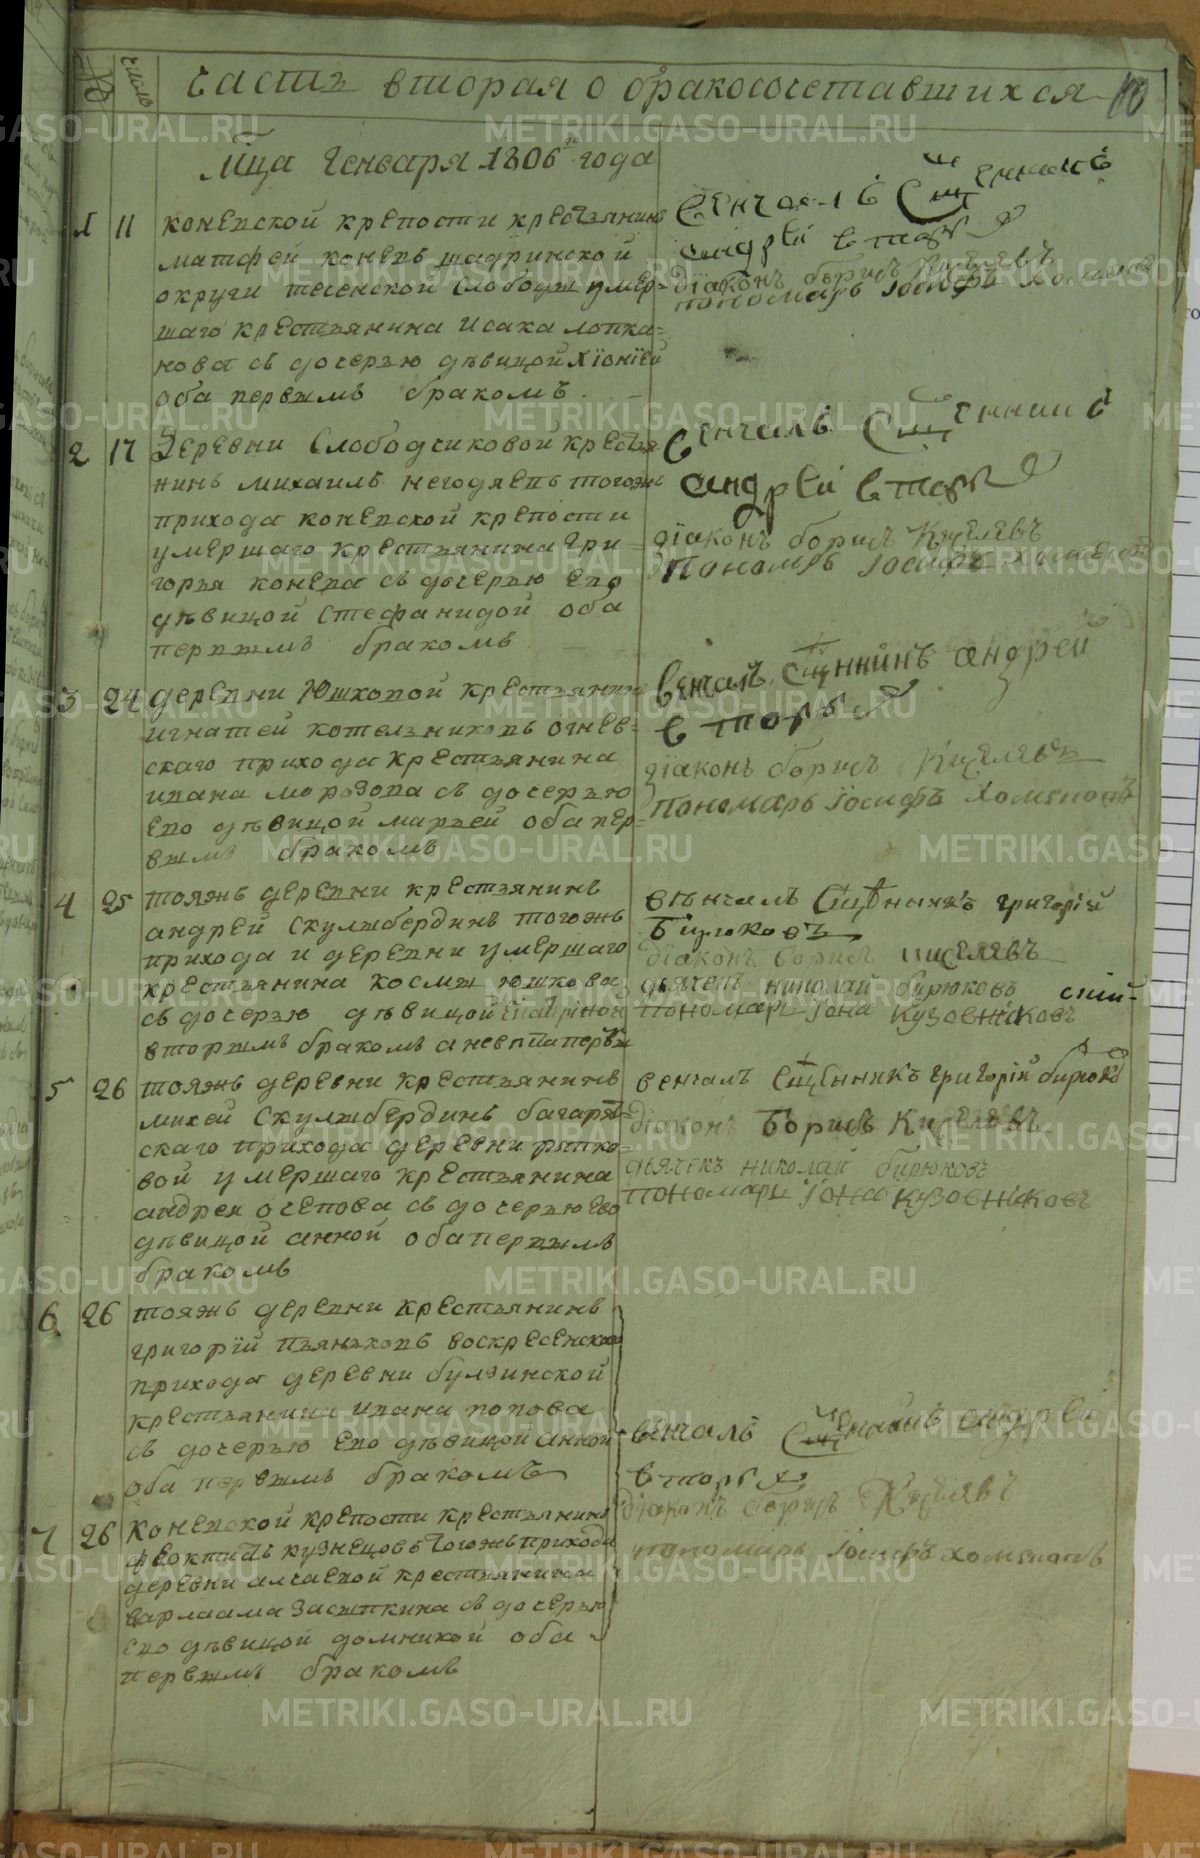 № число
часть вторая о бракосочетавшихся
10
Мца Генваря 1806го года
1 11 коневской крепости крестьянинъ
матфей коневъ шадринской
округи теченской слободы умер-
шаго крестьянина исака лопка-
нова съ дочерью девицой Хїонїей
оба первымъ бракомъ
Венчалъ Сщенникъ
андрей второвъ
дїаконъ борисъ Киселявъ
пономарь Iосифъ Хомяковъ
2 17 Деревни Слободчиковой крестья
нинъ михаилъ негодяевъ тогожъ
прихода коневской крепости
умершаго крестьянина гри-
горья конева съ дочерью ево
девицой Стефанидой оба
первымъ бракомъ
венчалъ Сщенникъ
андрей второвъ
дїаконъ борисъ Киселявъ
Пономарь Iосифъ
3 24 деревни Юшковой крестьянинъ
игнатей котельниковъ огнев-
скаго прихода крестьянина
ивана морозова съ дочерью
ево девицой марьей оба пер-
вымъ бракомъ
венчалъ Сщеннинъ андрей
второвъ
дїаконъ борисъ Киселявъ
пономарь Iосифъ Хомяковъ
4 25 тояжъ деревни крестьянинъ
андрей Скулыбердинъ тогожъ
прихода и деревни умершаго
крестьянина космы юшкова
съ дочерью девицой
вторымъ бракомъ а невѣста первы
вѣнчалъ Сщенникъ григорїй
Бирюковъ
дїаконъ борисъ киселявъ
дьячекъ николай бирюковъ
пономарь Iона Кузовниковъ
5 26 тояжъ деревни крестьянинъ
михей Скулыбердинъ багаряк-
скаго прихода деревни рыпко-
вой умершаго крестьянина
андрея очепова съ дочерью ево
девицой анной оба первымъ
бракомъ
венчалъ Сщенникъ григорїй бирюко
дїаконъ Борисъ Киселявъ
дьячекъ николай бирюковъ
пономарь Iона Кузовниковъ
6 26 тояжъ деревни крестьянинъ
григорїй пьянковъ воскресенского
прихода деревни булзинской
крестьянина ивана попова
съ дочерью ево девицой анной
оба первымъ бракомъ
7 26 Коневской крепости крестьянинъ
феоктистъ кузнецовъ тогожъ прихода
деревни алчаевой крестьянина
варлаама засыпкина съ дочерью
ево девицой домникой оба
первымъ бракомъ
венчалъ Сщенникъ андрей
второвъ
дїаконъ борисъ Киселявъ
пономарь Iосифъ хомяковъ